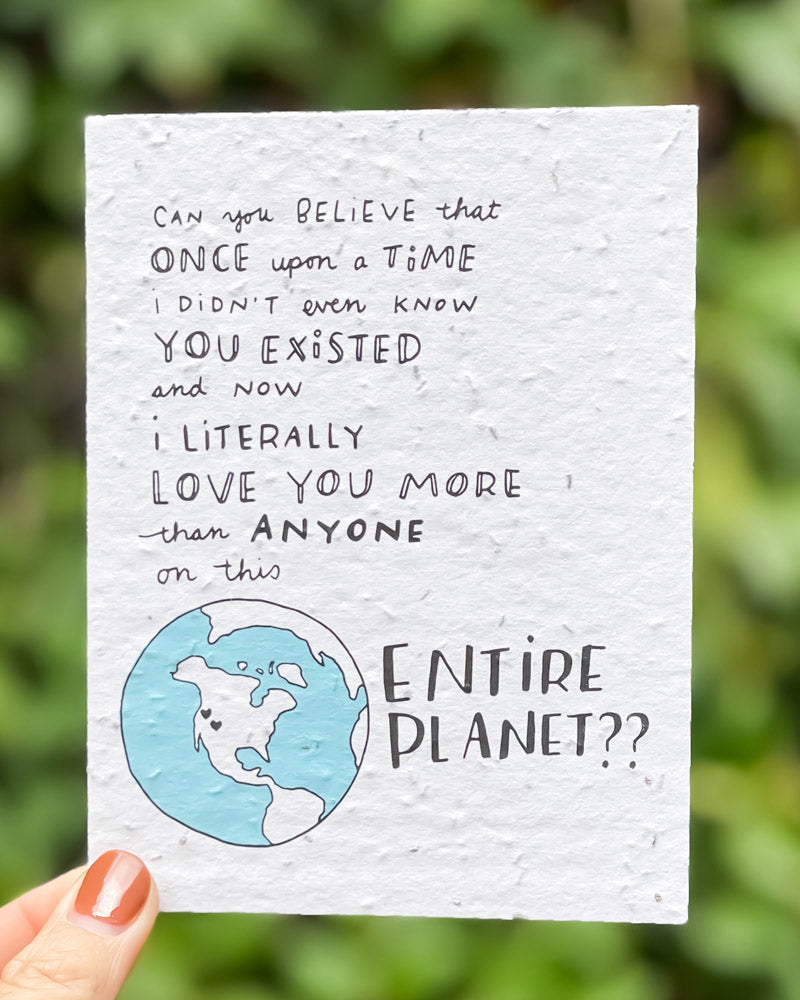 CAN you BELiEVE that
ONCE upon a TiME
i DiDN'T even KNOW
YOU EXiSTED
and NOW
i LiTERALLY
LOVE YOU MORE
than ANYONE
on this
ENTiRE
PLANET??